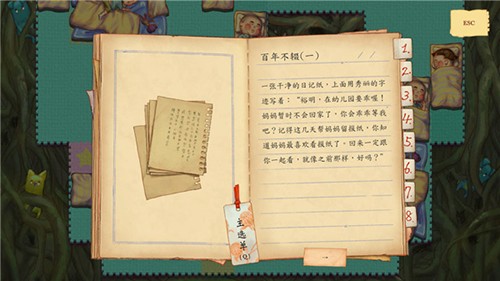 ESC
百年不辍(一)
一张干净的日记纸，上面用秀丽的字
迹写着：“裕明，在幼儿园要乖喔！
妈妈暂时不会回家了，你会乖乖等我
吧？记得这几天帮妈妈留报纸，你知
道妈妈最喜欢看报纸了。回来一定跟
你一起看，就像之前那样，好吗？”
1.
2.
3.
4.
5.
6.
7.
8.
主选单
(Q)